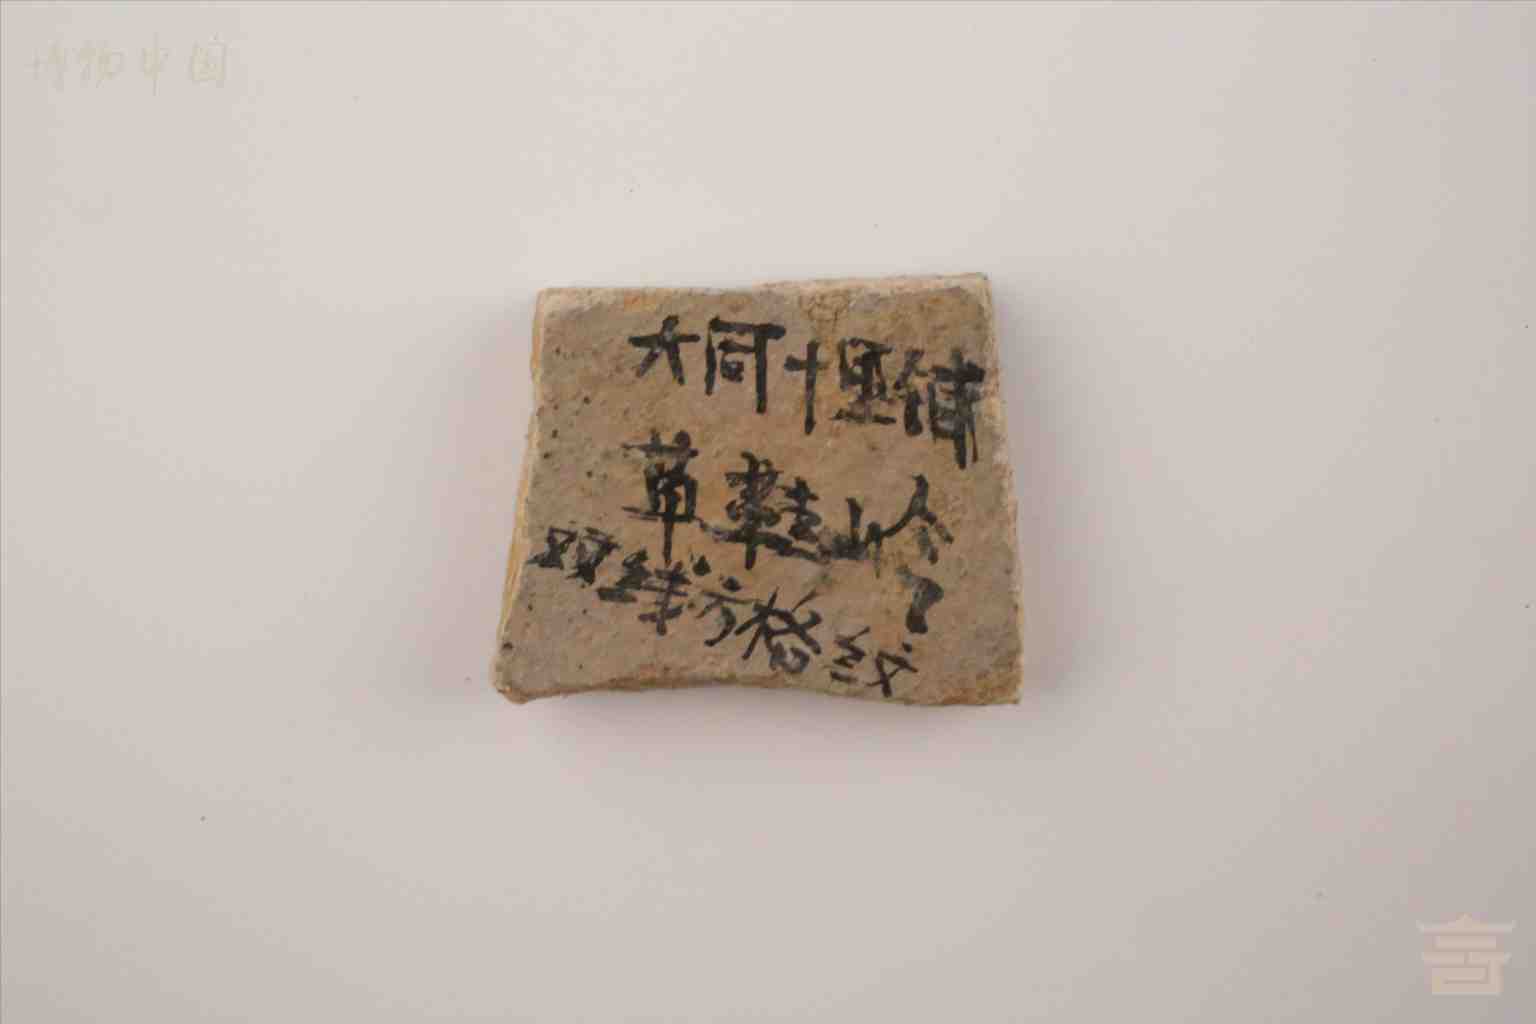 博物中国
大同十里铺
草鞋岭
双线方格纹